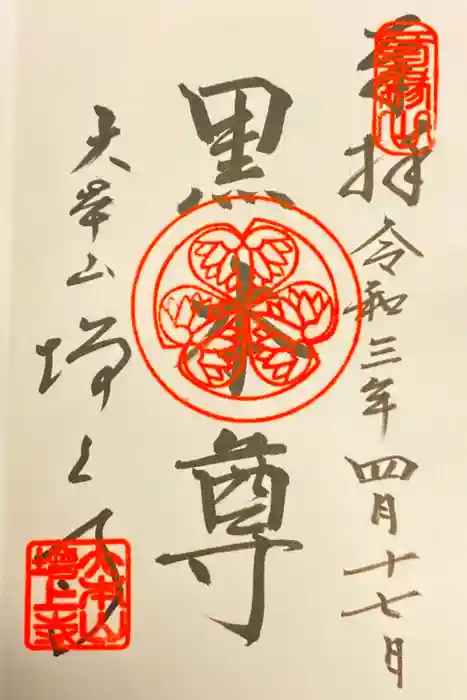 奉拝 令和三年四月十七日
黒本尊
大本山 増上寺
三縁山
大本山増上寺